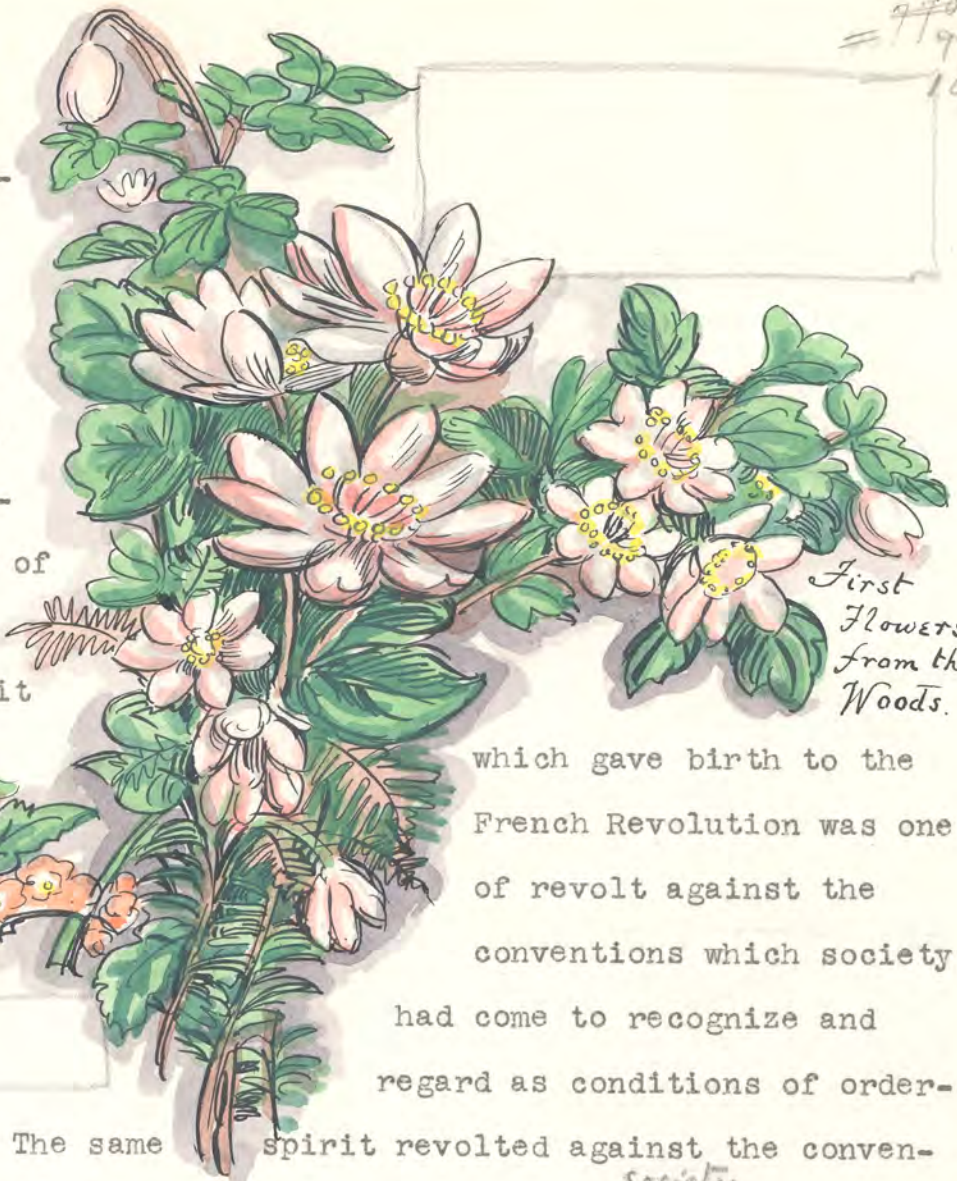 -
-
of
it
First
Flowers
from th
Woods.
which gave birth to the
French Revolution was one
of revolt against the
conventions which society
had come to recognize and
regard as conditions of order-
The same spirit revolted against the conven-
society